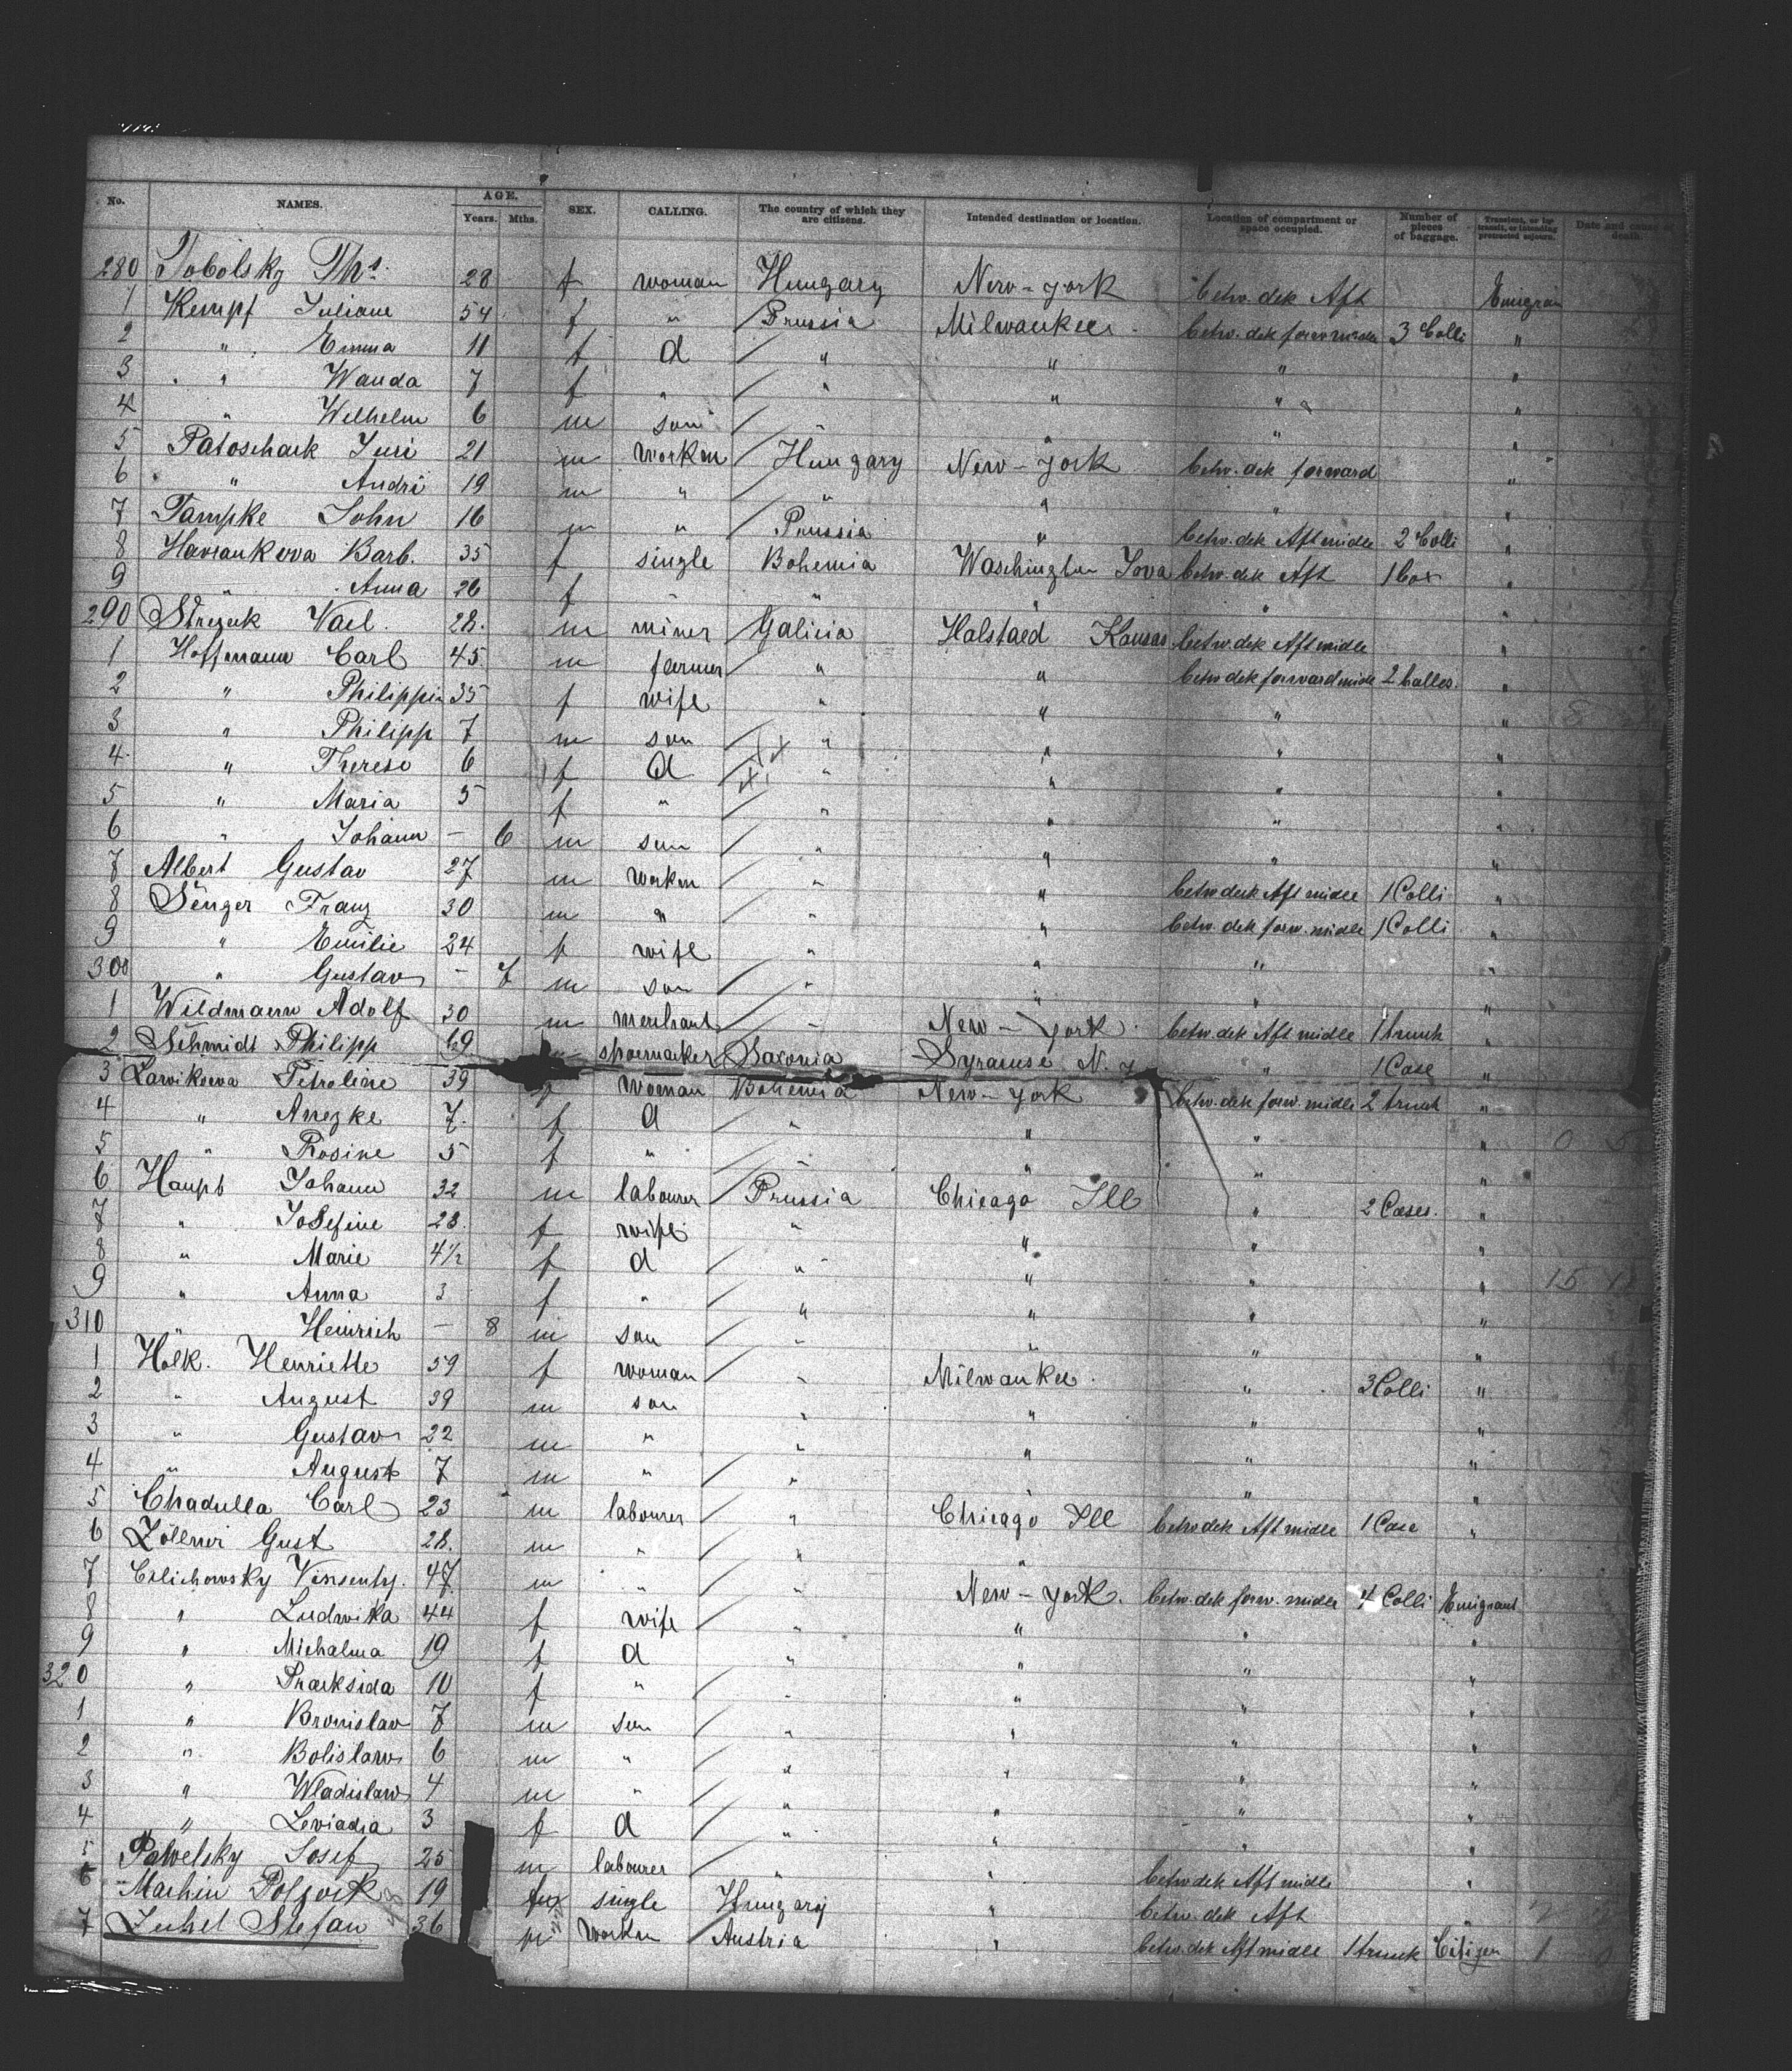 No. NAMES. AGE. Years. Mths. SEX. CALLING. The country of which they are citizens. Intended destination or location. Location of compartment or space occupied. Number of pieces of baggage. Transient, or in transit, or intending protracted sojourn. Date and cause of death.
280 Tobolsky Ths. 28 f woman Hungary New-york betw. dek Aft Emigran
1 Kempf Juliane 54 f " Prussia Milwaukee betw. dek forw midle 3 Colli "
2 " Emma 11 f d " " " "
3 " Wanda 7 f " " " " "
4 " Wilhelm 6 m son " " " "
5 Patoschack Juri 21 m workm Hungary New-york betw. dek forward "
6 " Andri 19 m " " " " "
7 Tampke John 16 m " Prussia " betw. dek Aft midle 2 Colli "
8 Havrankova Barb. 35 f single Bohemia Waschington Jova betw. dek Aft 1 box "
9 " Anna 26 f " " " " "
290 Strezek Vacl. 28. m miner Galicia Halstaed Kansas betw. dek Aft midle "
1 Hoffmann Carl 45 m farmer " " betw dek forward midle 2 Colles. "
2 " Philippin 35 f wife " " " "
3 " Philipp 7 m son " " " "
4 " Therese 6 f d " " " "
5 " Maria 5 f " " " " "
6 " Johann - 6 m son " " " "
7 Albert Gustav 27 m workm " " betw deck Aft midle 1 Colli "
8 Senger Franz 30 m " " " betw. dek forw. midle 1 Colli "
9 " Emilie 24 f wife " " " "
300 " Gustav - 7 m son " " " "
1 Wildmann Adolf 30 m merchant " New-york betw. dek Aft midle 1 trunk "
2 Schmidt Philipp 69 shoemacker Saxonia Syracuse N. y " 1 Case "
3 Lawikowa Petroline 39 f woman Bohemia New-york betw. dek forw. midle 2 trunk "
4 " Anezke 7. f d " " " "
5 " Rosine 5 f " " " " "
6 Haupt Johann 32 m labourer Prussia Chicago Ill " 2 Cases. "
7 " Josefine 28. f wife " " " "
8 " Marie 4½ f d " " " "
9 " Anna 3 f " " " " "
310 " Heinrich - 8 m son " " " "
1 Holk. Henriette 59 f woman " Milwaukee. " 3 Colli "
2 " August 39 m son " " " "
3 " Gustav 22 m " " " " "
4 " August 7 m " " " " "
5 Chadulla Carl 23 m labourer " Chicago Ill betw dek Aft midle 1 Case "
6 Zöllner Gust 28. m " " "
7 Cilichowsky Vinsenty. 47 m " " New-york. betw. dek forw. midle 4 Colli Emigrant
8 " Ludwika 44 f wife " " " "
9 " Michalina 19 f d " " " "
320 " Praksida 10 f " " " " "
1 " Bronislav 7 m son " " " "
2 " Bolislaw 6 m " " " " "
3 " Wladislaw 4 m " " " " "
4 " Leviadia 3 f d " " " "
5 Pawelsky Josef 25 m labourer " " betw dek Aft midle "
6 Machin 19 single Hungary " betw. dek Aft "
7 Zuhel Stefan 36 m workm Austria " betw. dek Aft midle 1 trunk Citizen 1 0